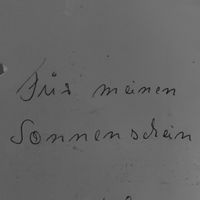 Für meinen
Sonnenschein